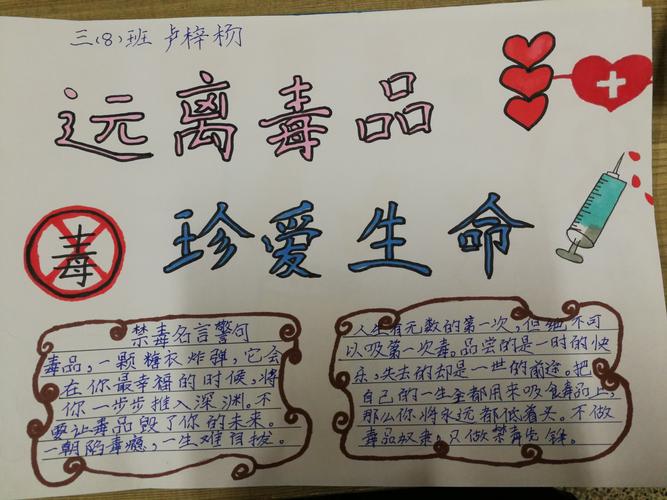 三(8)班 卢梓杨
远离毒品
珍爱生命
毒
禁毒名言警句
毒品，一颗糖衣炸弹，它会
在你最幸福的时候，将
你一步步推入深渊。不
要让毒品毁了你的未来。
一朝陷毒瘾，一生难自拔。
人生有无数的第一次，但绝不可
以吸第一次毒。品尝的是一时的快
乐，失去的却是一世的前途。把
自己的一生全都用来吸食毒品上，
那么你将永远都低着头。不做
毒品奴隶，只做禁毒先锋。